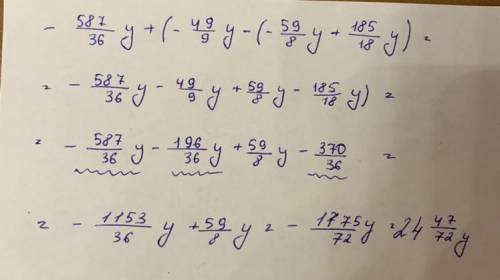 - 587/36 y + (- 49/9 y - (- 59/8 y + 185/18 y) =
= - 587/36 y - 49/9 y + 59/8 y - 185/18 y) =
= - 587/36 y - 196/36 y + 59/8 y - 370/36 =
= - 1153/36 y + 59/8 y = - 1775/72 y = 24 47/72 y